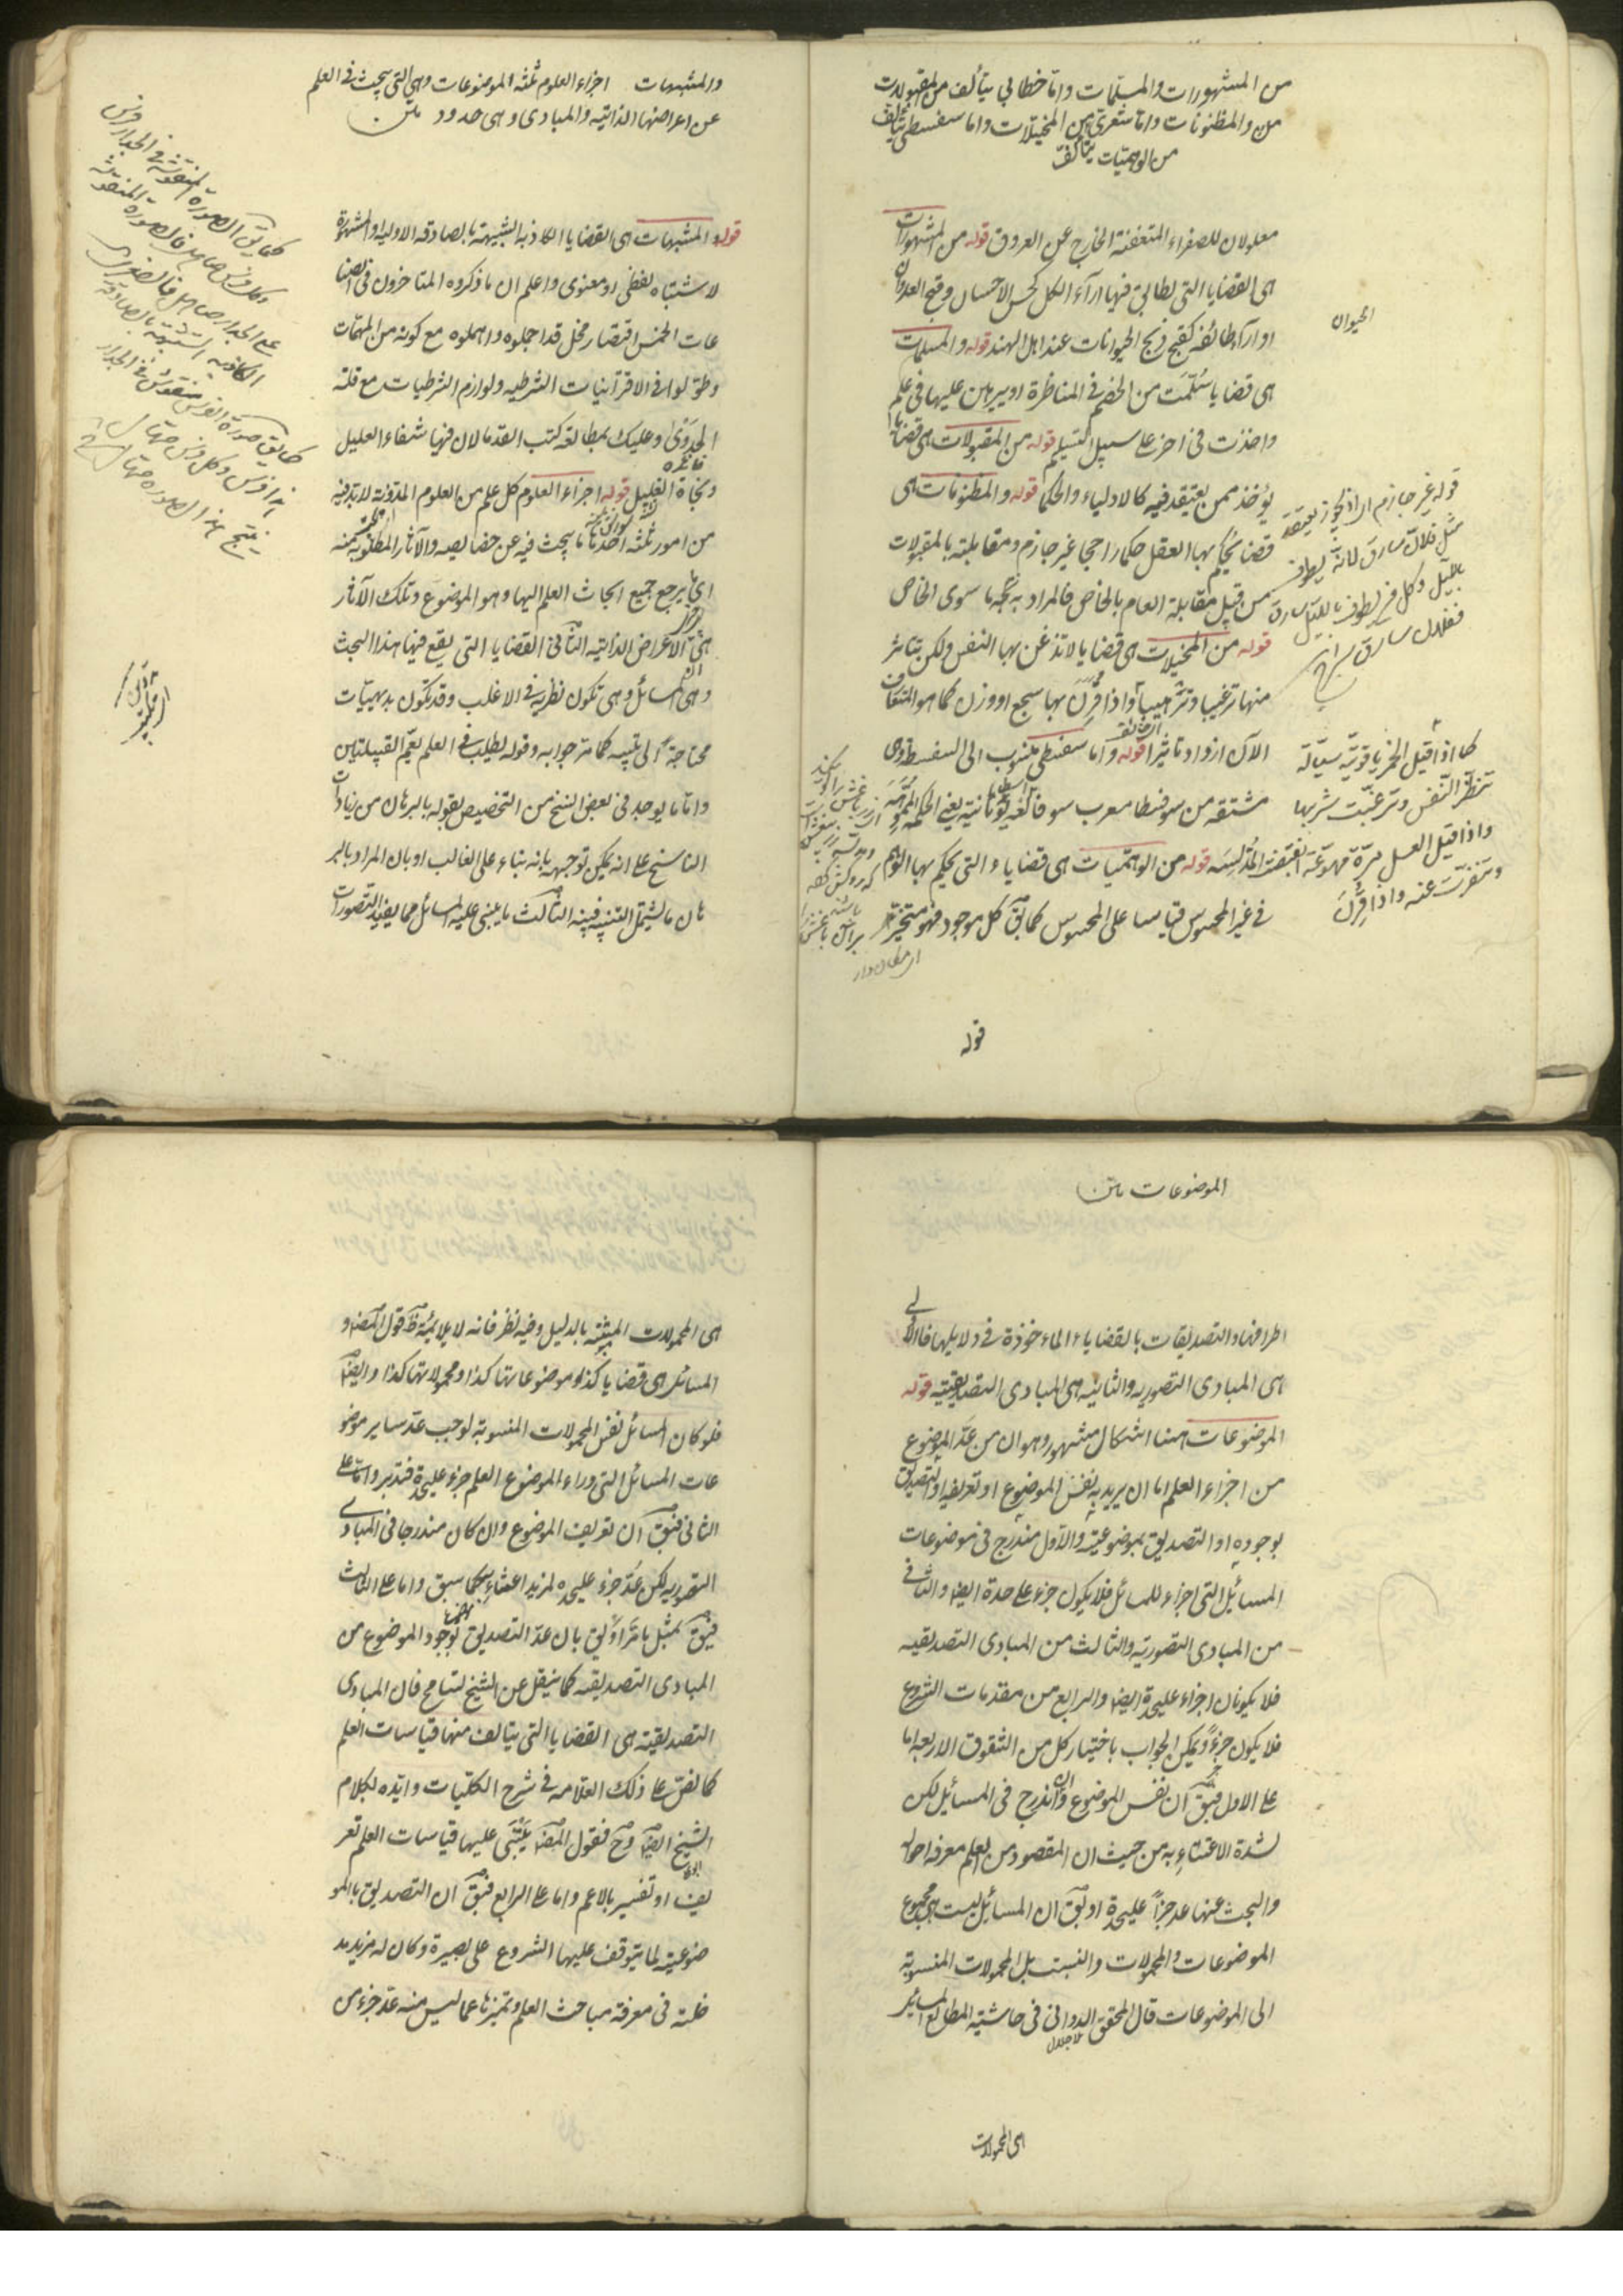 من المشهورات والمسلمات واما خطابي يتألف من المقبولات
من والمظنونات واما شعري من المخيلات واما سفسطي يتألف
من الوهميات يتألف
معلولان للصفراء المتعفنة الخارج عن العروق قوله من المشهورات
هى القضايا التى يطابق فيها آراء الكل كحسن الاحسان وقبح العدوان
او آراء طائفة كقبح ذبح الحيوانات عند اهل الهند قوله والمسلمات
هى قضايا سلمت من الخصم فى المناظرة او يبرهن عليها فى علم
واخذت فى اخر على سبيل التسليم قوله من المقبولات هى قضايا
يؤخذ ممن يعتقد فيه كالاولياء والحكما قوله والمظنونات هى
قضايا يحكم بها العقل حكما راجحا غير جازم ومقابلته بالمقبولات
من قبيل مقابلة العام بالخاص فالمراد به ما سوى الخاص
قوله من المخيلات هى قضايا لا تذعن بها النفس ولكن يتاثر
منها ترغيبا وترهيبا واذا قرن بها سجع او وزن كما هو المتعارف
الآن ازداد تاثيرا قوله واما سفسطى منسوب الى السفسطة وهى
مشتقة من سوفسطا معرب سوفا لغة يونانية يعنى الحكمة المموهة
المدلسة قوله من الوهميات هى قضايا والتى يحكم بها الوهم
فى غير المحسوس قياسا على المحسوس كما يق كل موجود فهو متحيز
قوله
الحيوان
قوله غير جازم
مثل فلان سارق لانه يطوف
بالليل وكل من يطوف بالليل سارق
ففلان سارق
كما اذا قيل الخمر ياقوتية سيالة
النفس وترغبت شربها
واذا قيل العسل مرة مهوعة انقبضت
وتنفرت عنه واذا قرن
والمشبهات اجزاء العلوم ثلثة الموضوعات وهى التى يبحث فى العلم
عن اعراضها الذاتية والمبادى وهى حدود متن
قوله والمشبهات هى القضايا الكاذبة الشبيهة بالصادقة الاولية او المشهورة
لاشتباه لفظى او معنوى واعلم ان ما ذكروه المتاخرون فى الصنا
عات الخمس اقتصار مخل قد اجملوه واهملوه مع كونه من المهمات
وطولوا فى الاقترانيات الشرطيه ولوازم الشرطيات مع قلة
الجدوى وعليك بمطالعة كتب القدما لان فيها شفاء العليل
ونجاة الغليل قوله اجزاء العلوم كل علم من العلوم المدونة لا بد فيه
من امور ثلثة احدها ما يبحث فيه عن خصائصه والآثار المطلوبة منه
اى يرجع جميع ابحاث العلم اليها وهو الموضوع وتلك الآثار
هى الاعراض الذاتية الثانى القضايا التى يقع فيها هذا البحث
وهى المسائل وهى تكون نظرية فى الاغلب وقد تكون بديهيات
محتاجة الى تنبيه كما مر جوابه وقوله يطلب فى العلم يعم القبيلتين
واما ما يوجد فى بعض النسخ من التخصيص بقوله بالبرهان من زيادات
الناسخ على انه يمكن توجيهه بانه بناء على الغالب او بان المراد بالبر
هان ما يشتمل التنبيه الثالث ما يبتنى عليه المسائل مما يفيد التصورات
كما يق صورة الفرس منقوش فى الجدار
الموضوعات متن
اطرافها والتصديقات بالقضايا الماءخوذة فى دلايلها فالاولى
هى المبادى التصورية والثانيه هى المبادى التصديقيته قوله
الموضوعات ههنا اشكال مشهور وهو ان من عد الموضوع
من اجزاء العلم اما ان يريد به نفس الموضوع او تعريفه او التصديق
بوجوده او التصديق بموضوعيته والاول مندرج فى موضوعات
المسائيل التى اجزاء للمسائل فلا يكون جزء على حدة ايضا والثانى
من المبادى التصورية والثالث من المبادى التصديقيه
فلا يكونان اجزاء عليحدة ايضا والرابع من مقدمات الشروع
فلا يكون جزءً ويمكن الجواب باختيار كل من الشقوق الاربعة اما
على الاول فيق ان نفس الموضوع وان اندرج فى المسائيل لكن
لشدة الاعتناء به من حيث ان المقصود من العلم معرفة احواله
والبحث عنها عد جزأً عليحدة او يق ان المسائيل ليست هى مجموع
الموضوعات والمحمولات والنسبت بل المحمولات المنسوبة
الى الموضوعات قال المحقق الدوانى فى حاشية المطالع المسائل
ملا جلال
هى المحمولات
هى المحمولات المثبتة بالدليل وفيه نظر فانه لا يلائمه ظ قول المص و
المسائل هى قضايا كذا وموضوعاتها كذا ومحمولاتها كذا وايضا
فلو كان المسائل نفس المحمولات المنسوبة لوجب عد ساير موضو
عات المسائل التى وراء الموضوع العلم جزء عليحدة فتدبر واما على
الثانى فيق ان تعريف الموضوع وان كان مندرجا فى المبادى
التصوريه لكن عد جزء عليحده لمزيد اعتناء به كما سبق واما على الثالث
فيق بمثل ما مر او يق بان عد التصديق بوجود الموضوع من
المبادى التصديقيه كما ينقل عن الشيخ تسامح فان المبادى
التصديقية هى القضايا التى يتالف منها قياسات العلم
كما نص على ذلك العلامه فى شرح الكليات وايده بكلام
الشيخ ايضا وح فقول المص يبتنى عليها قياسات العلم تعر
يف او تفسير بالاعم واما على الرابع فيق ان التصديق بالمو
ضوعيته لما يتوقف عليها الشروع على بصيرة وكان له مزيد مد
خلية فى معرفة مباحث العلم وتميزها عما ليس منه عد جزء من